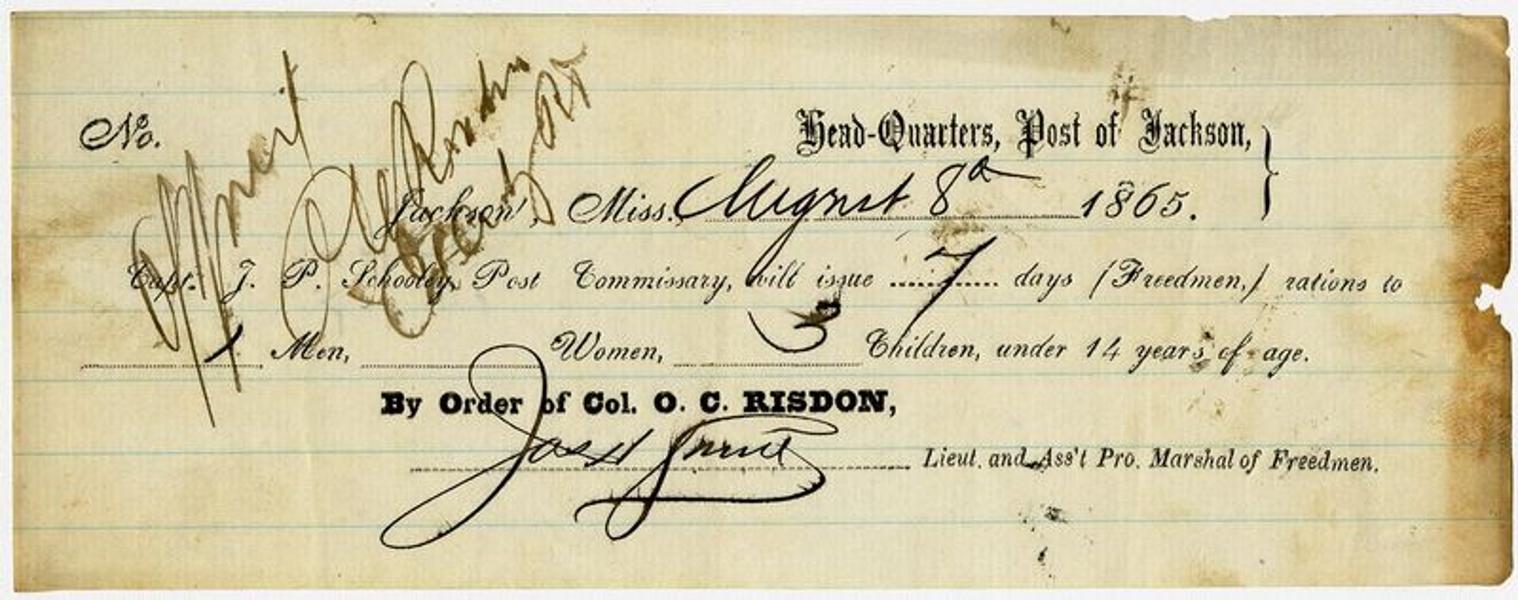 No.
Head-Quarters, Post of Jackson,
Jackson, Miss. August 8th 1865.
Capt. J. P. Schooley, Post Commissary, will issue 7 days (Freedmen,) rations to
1 Men, Women, 3 Children, under 14 years of age.
By Order of Col. O. C. RISDON,
Jas H
Lieut. and Ass't Pro. Marshal of Freedmen.
OC Risdon